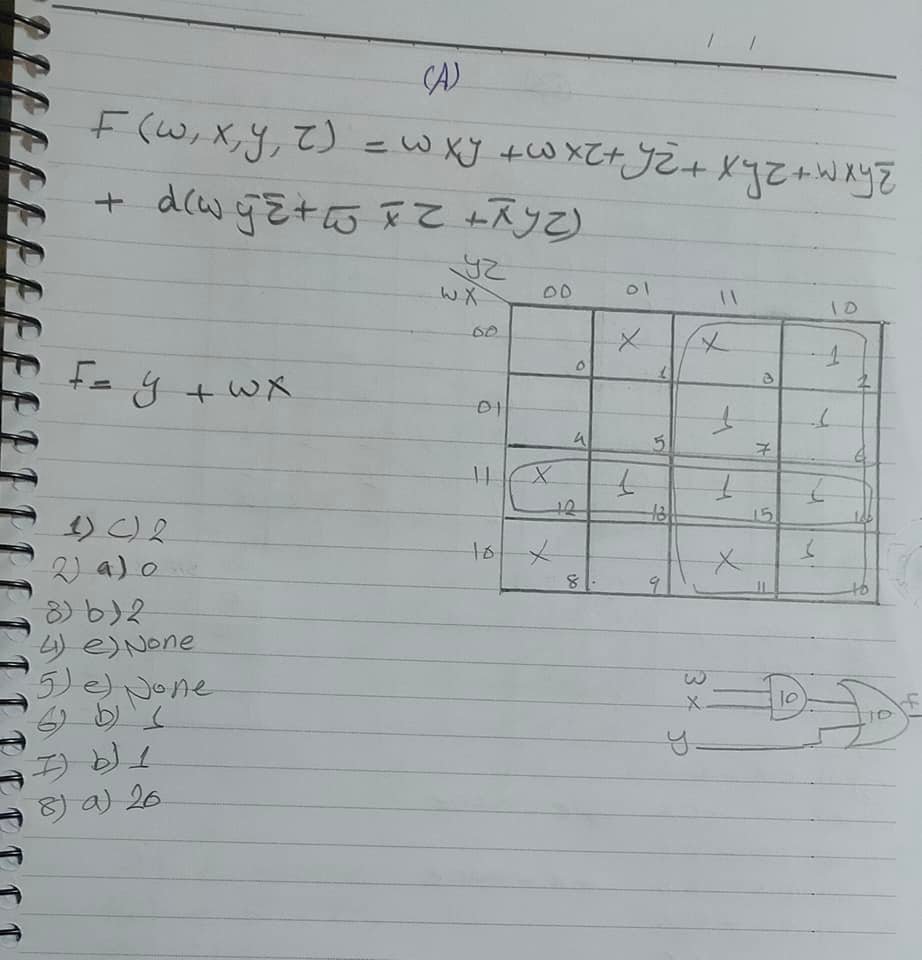 / /
(A)
F(w,x,y,z) = wxy + wxz + yz̅ + xyz + wxyz̅
+ d(w y̅z̅ + w̅ x̅ z + x̅yz)
yz
wx 00 01 11 10
00 0 X 1 X 3 1 2
F = y + wx
01 4 5 1 7 1 6
11 X 12 1 13 1 15 1 14
1) c) 2
10 X 8 9 X 11 1 10
2) a) 0
3) b) 2
4) e) None
5) e) None
6) b) 1
7) b) 1
8) a) 20
w
x 10 10 F
y